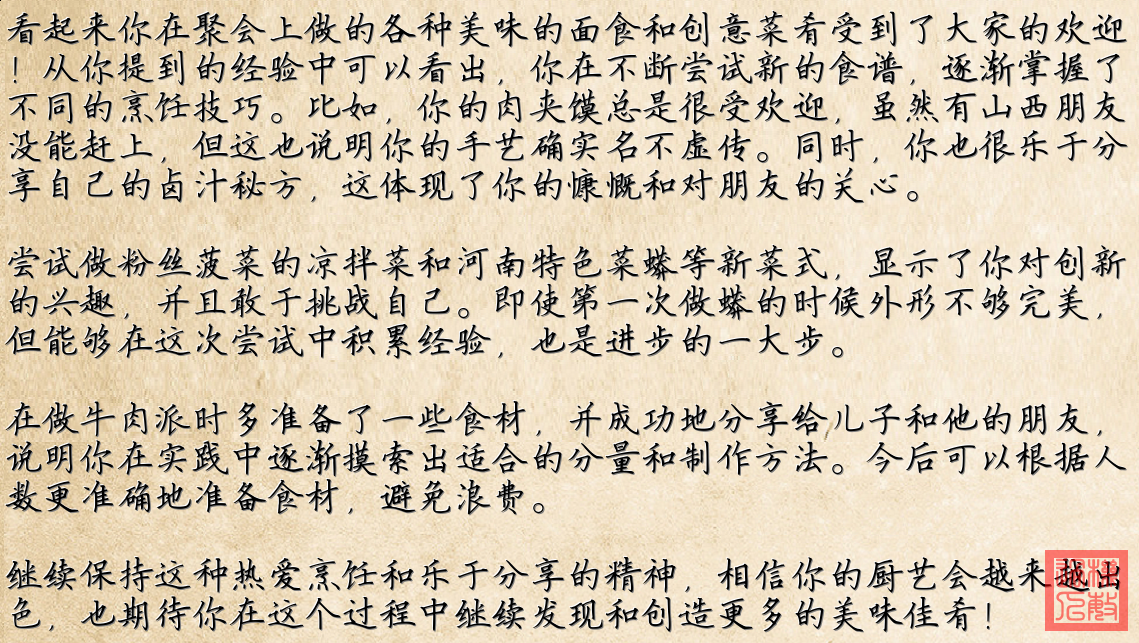 看起来你在聚会上做的各种美味的面食和创意菜肴受到了大家的欢迎
！从你提到的经验中可以看出，你在不断尝试新的食谱，逐渐掌握了
不同的烹饪技巧。比如，你的肉夹馍总是很受欢迎，虽然有山西朋友
没能赶上，但这也说明你的手艺确实名不虚传。同时，你也很乐于分
享自己的卤汁秘方，这体现了你的慷慨和对朋友的关心。
尝试做粉丝菠菜的凉拌菜和河南特色菜蟒等新菜式，显示了你对创新
的兴趣，并且敢于挑战自己。即使第一次做蟒的时候外形不够完美，
但能够在这次尝试中积累经验，也是进步的一大步。
在做牛肉派时多准备了一些食材，并成功地分享给儿子和他的朋友，
说明你在实践中逐渐摸索出适合的分量和制作方法。今后可以根据人
数更准确地准备食材，避免浪费。
继续保持这种热爱烹饪和乐于分享的精神，相信你的厨艺会越来越出
色，也期待你在这个过程中继续发现和创造更多的美味佳肴！